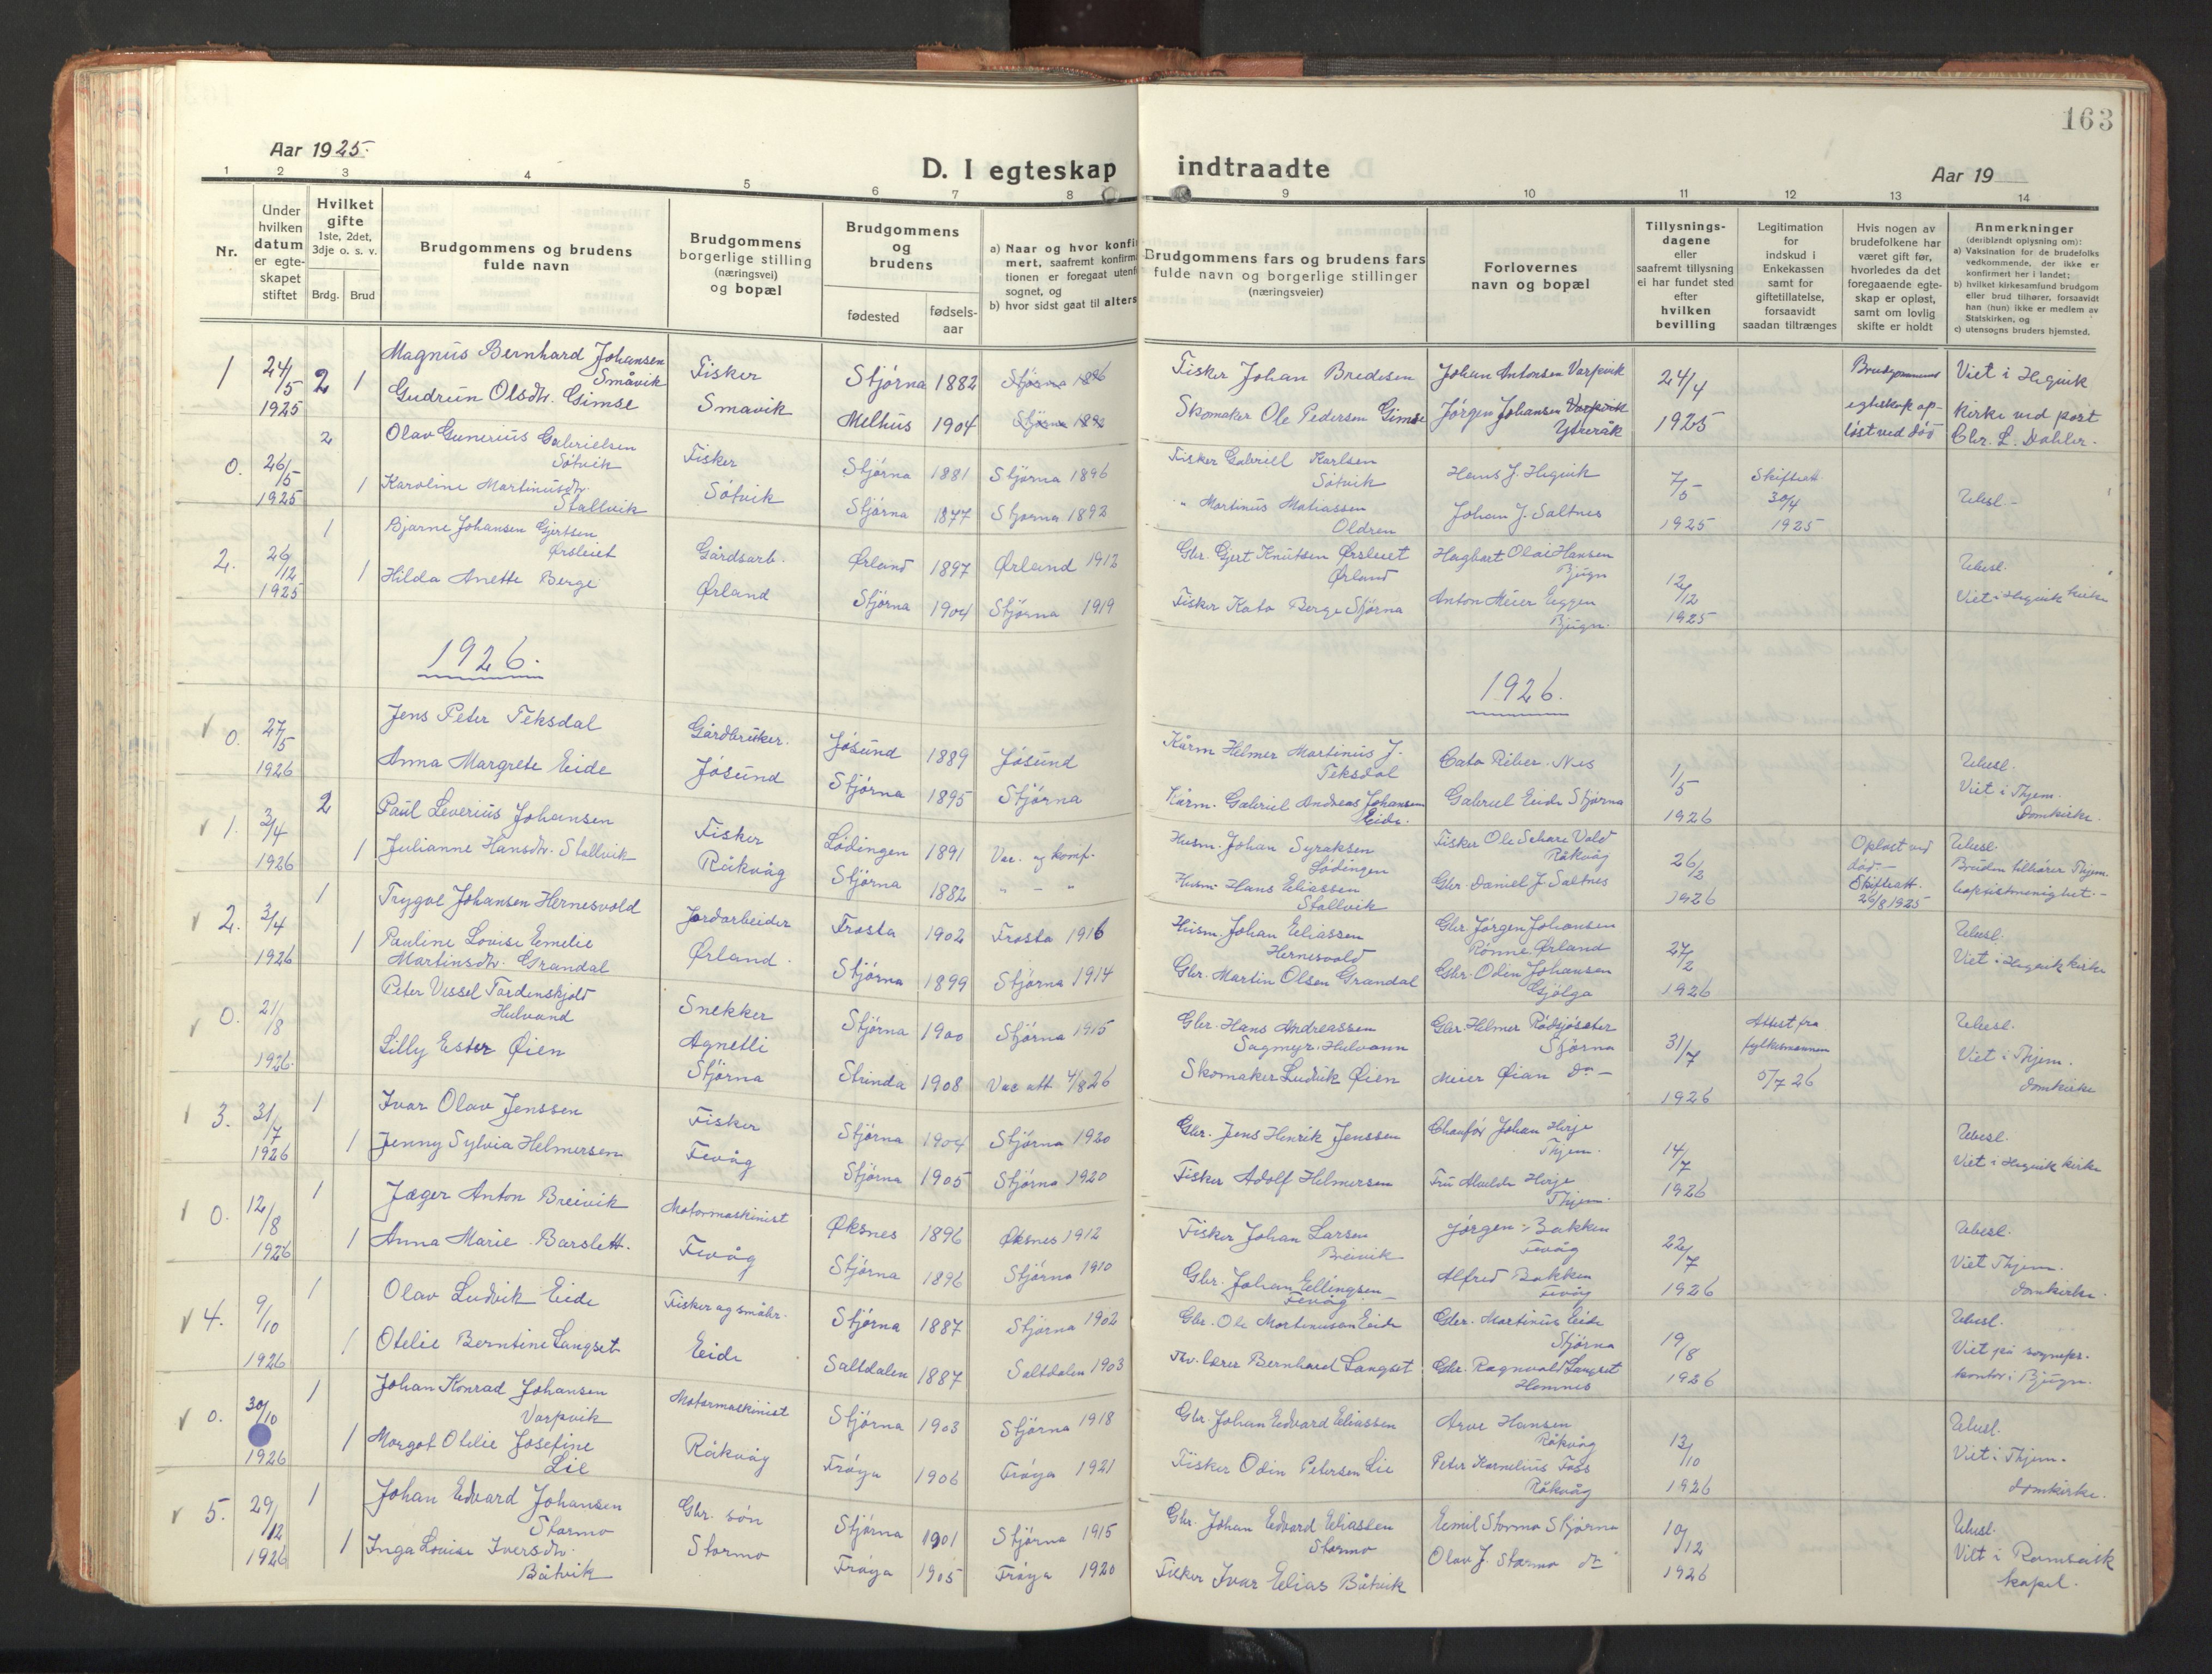 163
Aar 1925.
D. I egteskap indtraadte
Aar 19
1 2 3 4 5 6 7 8 9 10 11 12 13 14
Nr.
Under hvilken datum er egteskapet stiftet
Hvilket gifte
1ste, 2det, 3dje o. s. v.
Brdg. Brud
Brudgommens og brudens fulde navn
Brudgommens borgerlige stilling (næringsvei) og bopæl
Brudgommens og brudens
fødested
fødsels-aar
a) Naar og hvor konfirmert, saafremt konfirmationen er foregaat utenfor sognet, og
b) hvor sidst gaat til alters
Brudgommens fars og brudens fars fulde navn og borgerlige stillinger (næringsveier)
Forlovernes navn og bopæl
Tillysningsdagene eller saafremt tillysning ei har fundet sted efter hvilken bevilling
Legitimation for indskud i Enkekassen samt for giftetillatelse, forsaavidt saadan tiltrænges
Hvis nogen av brudefolkene har været gift før, hvorledes da det foregaaende egteskap er opløst, samt om lovlig skifte er holdt
Anmerkninger
(deriblandt oplysning om):
a) Vaksination for de brudefolks vedkommende, der ikke er konfirmert her i landet;
b) hvilket kirkesamfund brudgom eller brud tilhører, forsaavidt han (hun) ikke er medlem av Statskirken, og
c) utensogns bruders hjemsted.
1 24/5 1925 2 1
Magnus Bernhard Johansen Småvik
Gudrun Olsdtr. Gimse
Fisker Småvik
Stjørna 1882 Stjørna 1896
Melhus 1904
Fisker Johan Bredesen
Skomaker Ole Pedersen Gimse
Johan Antonsen Varpvik
Jørgen Johansen Varpvik Ytreråk
24/4 1925
Brudgommens egteskap opløst ved død
Viet i Hegvik kirke ved past Chr. L. Dahler.
0. 26/5 1925 2 1
Olav Gunerius Gabrielsen Søtvik
Karoline Martinusdtr. Stallvik
Fisker Søtvik
Stjørna 1881 Stjørna 1896
Stjørna 1877 Stjørna 1892
Fisker Gabriel Karlsen Søtvik
" Martinus Matiassen Oldren
Hans J. Hegvik
Johan J. Saltnes
7/5 1925
Skifteatt 30/4 1925
Ubesl.
2. 26/12 1925 1 1
Bjarne Johansen Gjertsen Ørsleiet
Hilda Anette Berge
Gårdsarb. Ørland
Ørland 1897 Ørland 1912
Stjørna 1904 Stjørna 1919
Gbr. Gjert Knutsen Ørsleiet Ørland
Fisker Kato Berge Stjørna
Hagbart Olai Hansen Bjugn
Anton Meier Eggen Bjugn.
12/12 1925
Ubesl.
Viet i Hegvik kirke
1926.
1926.
0. 27/5 1926
Jens Peter Teksdal
Anna Margrete Eide
Gårdbruker. Jøsund
Jøsund 1889 Jøsund
Stjørna 1895 Stjørna
Kårm Helmer Martinus J. Teksdal
Kårm. Gabriel Andreas Johansen Eide.
Cato Riber Nes
Gabriel Eide Stjørna
1/5 1926
Ubesl.
Viet i Thjem. Domkirke.
1. 3/4 1926 2 1
Paul Leverius Johansen
Julianne Hansdtr. Stallvik
Fisker Råkvåg
Lødingen 1891 Vac. og konf.
Stjørna 1882 " - "
Husm. Johan Syraksen Lødingen
Husm. Hans Eliassen Stallvik
Fisker Ole Schare Vold Råkvåg
Gbr. Daniel J. Saltnes
26/2 1926
Opløst ved død - Skifteatt. 26/8 1925
Ubesl.
Bruden tilhører Thjem. baptistmenighet.
2. 3/4 1926 1 1
Trygve Johansen Hernesvold
Pauline Lovise Emelie Martinsdtr. Grandal
Jordarbeider Ørland.
Frosta 1902 Frosta 1916
Stjørna 1899 Stjørna 1914
Husm. Johan Eliassen Hernesvold
Gbr. Martin Olsen Grandal
Gbr. Jørgen Johansen Rønne Ørland
Gbr. Odin Johansen Gjølga
27/2 1926
Ubesl.
Viet i Hegvik kirke
0. 21/8 1926.
Peter Vessel Tordenskjold Hulvand
Lilly Ester Øien
Snekker Agnetli Stjørna
Stjørna 1900 Stjørna 1915
Strinda 1908 Vac att 4/8 26
Gbr. Hans Andreassen Sagmyr. Hulvann
Skomaker Ludvik Øien
Gbr. Helmer Rødsjøseter Stjørna
Meier Øian do -
31/7 1926
Attest fra fylkesmannen 5/7 26
Ubesl.
Viet i Thjem. domkirke
3. 31/7 1926 1 1
Ivar Olav Jenssen
Jenny Sylvia Helmersen
Fisker Fevåg
Stjørna 1904 Stjørna 1920
Stjørna 1905 Stjørna 1920
Gbr. Jens Henrik Jenssen
Fisker Adolf Helmersen
Chaufør Johan Hirje Thjem.
Fru Hirje Thjem.
14/7 1926
Ubesl.
Viet i Hegvik kirke
0. 12/8 1926 1 1
Jæger Anton Breivik
Anna Marie Barslett.
Motormaskinist Fevåg
Øksnes 1896 Øksnes 1912
Stjørna 1896 Stjørna 1910
Fisker Johan Larsen Breivik
Gbr. Johan Ellingsen Fevåg
Jørgen Bakken Fevåg
Alfred Bakken Fevåg
22/7 1926
Ubesl.
Viet Thjem. domkirke.
4. 9/10 1926 1 1
Olav Ludvik Eide
Otelie Berntine Langset
Fisker og småbr. Eide
Stjørna 1887 Stjørna 1902
Saltdalen 1887 Saltdalen 1903
Gbr. Ole Martinusen Eide
Fhv. lærer Bernhard Langset
Gbr. Martinus Eide Stjørna
Gbr. Ragnvald Langset Hemnes
19/8 1926
Ubesl.
Viet på sognepr. kontor i Bjugn.
0. 30/10 1926 1 1
Johan Konrad Johansen Varpvik
Margot Otelie Josefine Lie
Motormaskinist Råkvåg
Stjørna 1903 Stjørna 1918
Frøya 1906 Frøya 1921
Gbr. Johan Edvard Eliassen
Fisker Odin Petersen Lie
Arve Hansen Råkvåg
Peter Kornelius Foss Råkvåg
13/10 1926
Ubesl.
Viet i Thjem. domkirke.
5. 29/12 1926 1 1
Johan Edvard Johansen Stormo
Inga Louise Iversdtr. Båtvik
Gbr. søn Stormo
Stjørna 1901 Stjørna 1915
Frøya 1905 Frøya 1920
Gbr. Johan Edvard Eliassen Stormo
Fisker Ivar Elias Båtvik
Emil Stormo Stjørna
Olav J. Stormo do
10/12 1926
Ubesl.
Viet i Ramsvik kapel.